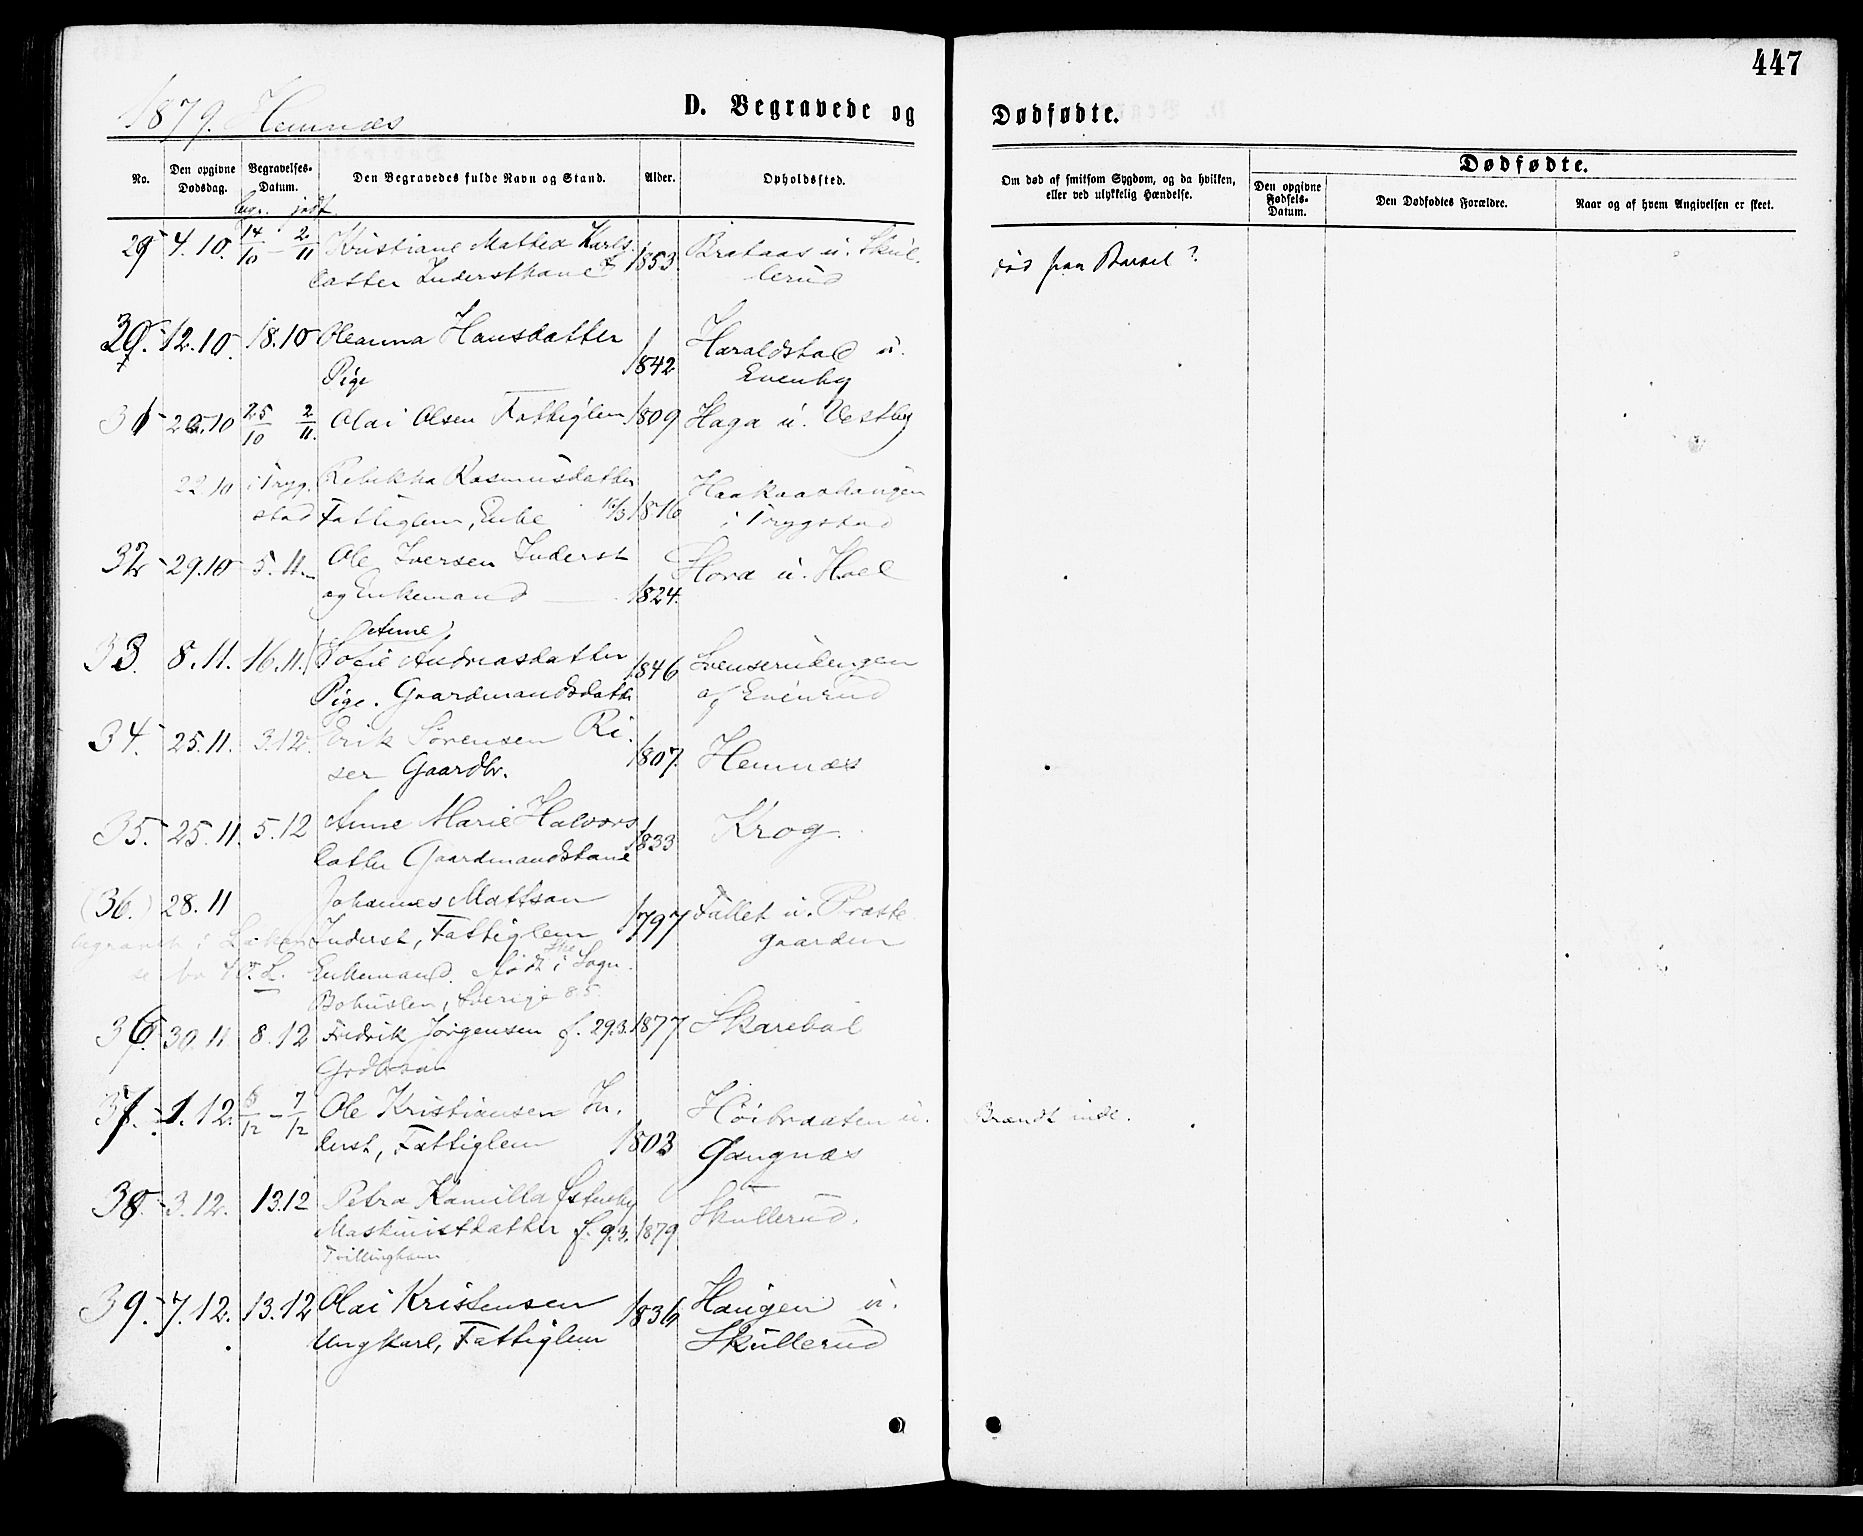 447
1879. Hemnæs
D. Begravede og Dødfødte.
No.
Den opgivne Dødsdag.
Begravelses-Datum.
Den Begravedes fulde Navn og Stand.
Alder.
Opholdssted.
Om død af smitsom Sygdom, og da hvilken, eller ved ulykkelig Hændelse.
Dødfødte.
Den opgivne Fødsels-Datum.
Den Dødfødtes Forældre.
Naar og af hvem Angivelsen er skeet.
begr. jodf.
29 4.10. 14/10 - 2/11 Kristiane Mathea Karls 1853. Brataas u. Skul-
datter Inderstkone lerud
død paa Barsel?
30. 12.10. 18.10 Oleanna Hansdatter 1842 Haraldstad u.
Pige Evenby
31 20.10 25/10 2/11. Olai Olsen Fattiglem 1809 Haga u. Vestby
22.10 i Tryg- Rebekka Rasmusdatter
stad Fattiglem, Enke 1816 i Trygstad
32 29.10 5.11. Ole Iversen Inderst
og Enkemand 1824. u. Hoel
Anne
33. 8.11. 16.11. Sofie Andreasdatter 1846
Pige. Gaardmandsdatter af
34. 25.11. 3.12. Erik Sørensen Ri- 1807. Hemnæs
ser Gaardbr.
35. 25.11. 5.12 Anne Marie Halvors 1833 Krog.
datter Gaardmandskone
(36.) 28.11 Johannes Mattson 1797 Fallet u. Præste
begravet i Inderst, Fattiglem gaarden
Enkemand. Født i Sogn.
Bohuslen, Sverige
36. 30.11 8.12 Fredrik Jørgensen f. 29.3. 1877. Skarebøl
37. 1.12. 5/12 - 7/12 Ole Kristiansen In- Høibraaten u.
derst, Fattiglem 1803 Gangnæs
Brændt inde.
38. 3.12. 13.12 Petra Kamilla Østenby Skullerud.
Maskinistdatter f. 9.3. 1879
Tvillingbarn
39. 7.12. 13.12 Olai Kristensen 1836 Haugen u.
Ungkarl, Fattiglem Skullerud